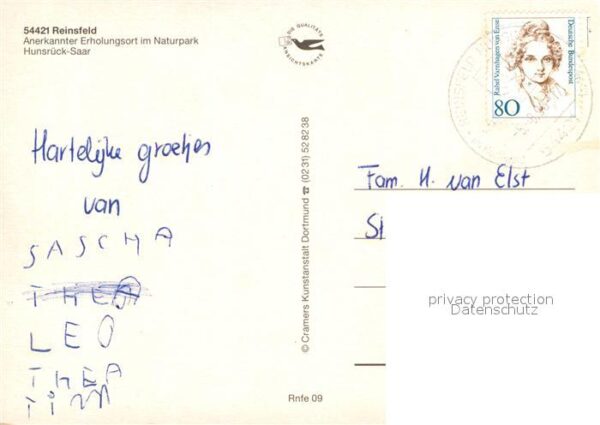 54421 Reinsfeld
Anerkannter Erholungsort im Naturpark
Hunsrück-Saar
DIE QUALITÄTS
ANSICHTSKARTE
Rahel Varnhagen von Ense
Deutsche Bundespost
80
Hartelijke groetjes
van
SASCHA
THEA
LEO
THEA
TiM
© Cramers Kunstanstalt Dortmund ☎ (0231) 528238
Rnfe 09
Fam. H. van Elst
privacy protection
Datenschutz